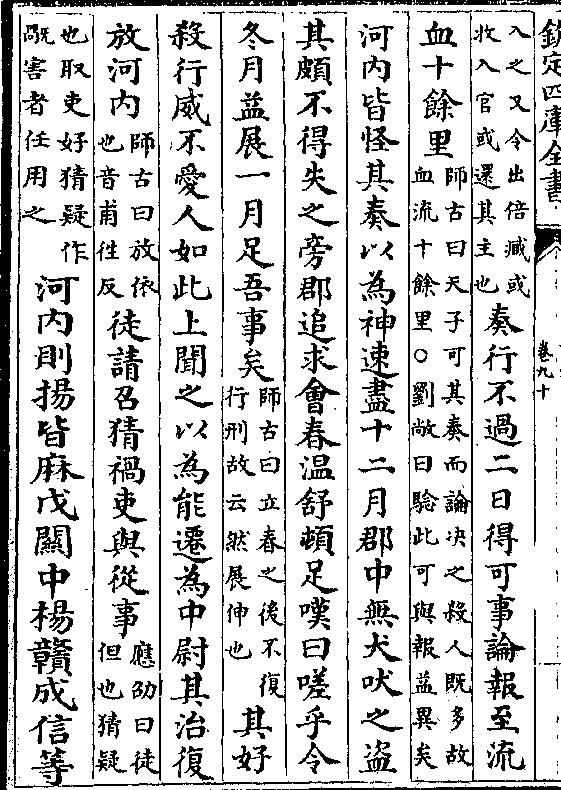 欽定四庫全書
卷九十
入之又令出倍臧或
收入官或還其主也
奏行不過二日得可事論報至流
血十餘里
師古曰天子可其奏而論決之殺人既多故
血流十餘里○劉敞曰驗此可與報益異矣
河内皆怪其奏以為神速盡十二月郡中無犬吠之盗
其頗不得失之旁郡追求會春溫舒頓足嘆曰嗟乎令
冬月益展一月足吾事矣
師古曰立春之後不復
行刑故云然展伸也
其好
殺行威不愛人如此上聞之以為能遷為中尉其治復
放河内
師古曰放依
也音甫往反
徒請召猜禍吏與從事
應劭曰徒
但也猜疑
也取吏好猜疑作
禍害者任用之
河内則揚皆麻戊關中楊贛成信等